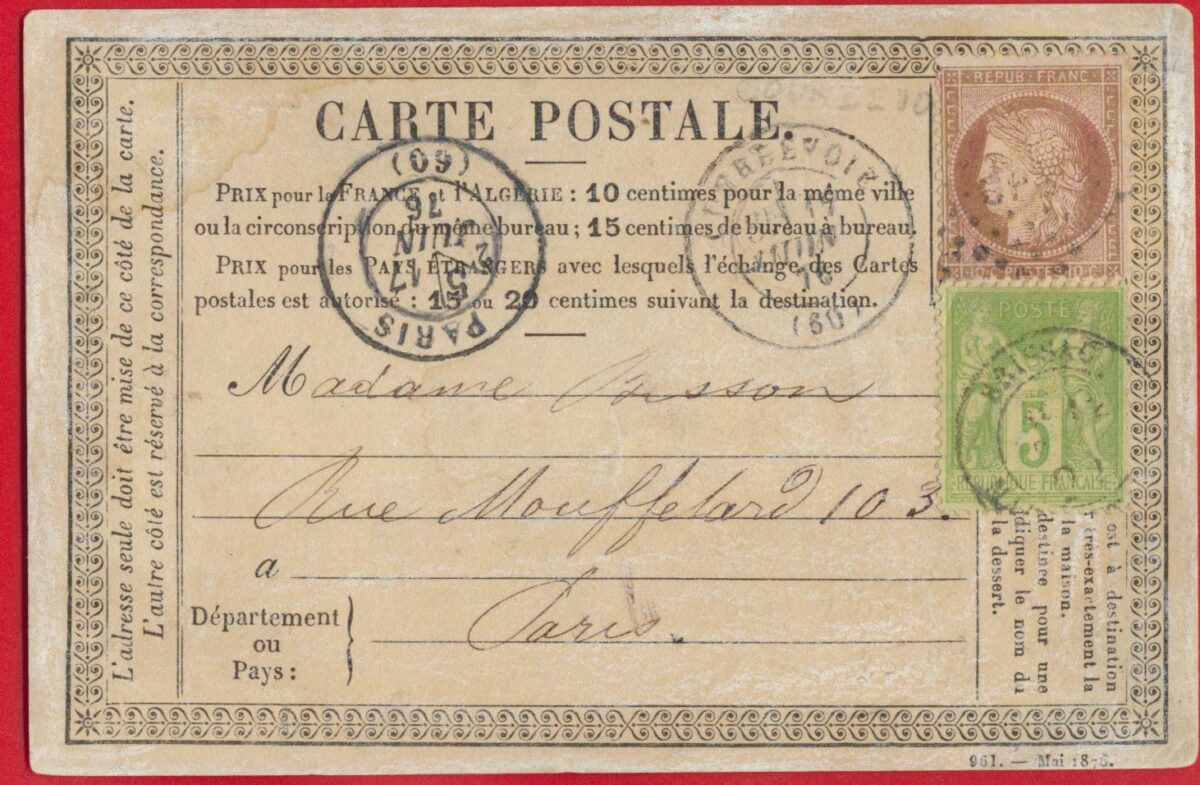 CARTE POSTALE.
PRIX pour la FRANCE et l'ALGÉRIE : 10 centimes pour la même ville
ou la circonscription du même bureau ; 15 centimes de bureau à bureau.
PRIX pour les PAYS ÉTRANGERS avec lesquels l'échange des Cartes
postales est autorisé : 15 ou 20 centimes suivant la destination.
PARIS
5
2e
17
JUIN
76
(60)
COURBEVOIE
17
JUIN
76
(60)
REPUB·FRANC·
POSTE
5
RÉPUBLIQUE FRANÇAISE
BRISSAC
Madame
Rue Mouffetard 103.
à
Paris.
Département
ou
Pays :
L'adresse seule doit être mise de ce côté de la carte.
L'autre côté est réservé à la correspondance.
est à destination
très-exactement la
la maison.
destinée pour une
diquer le nom du
la dessert.
961. — Mai 1876.